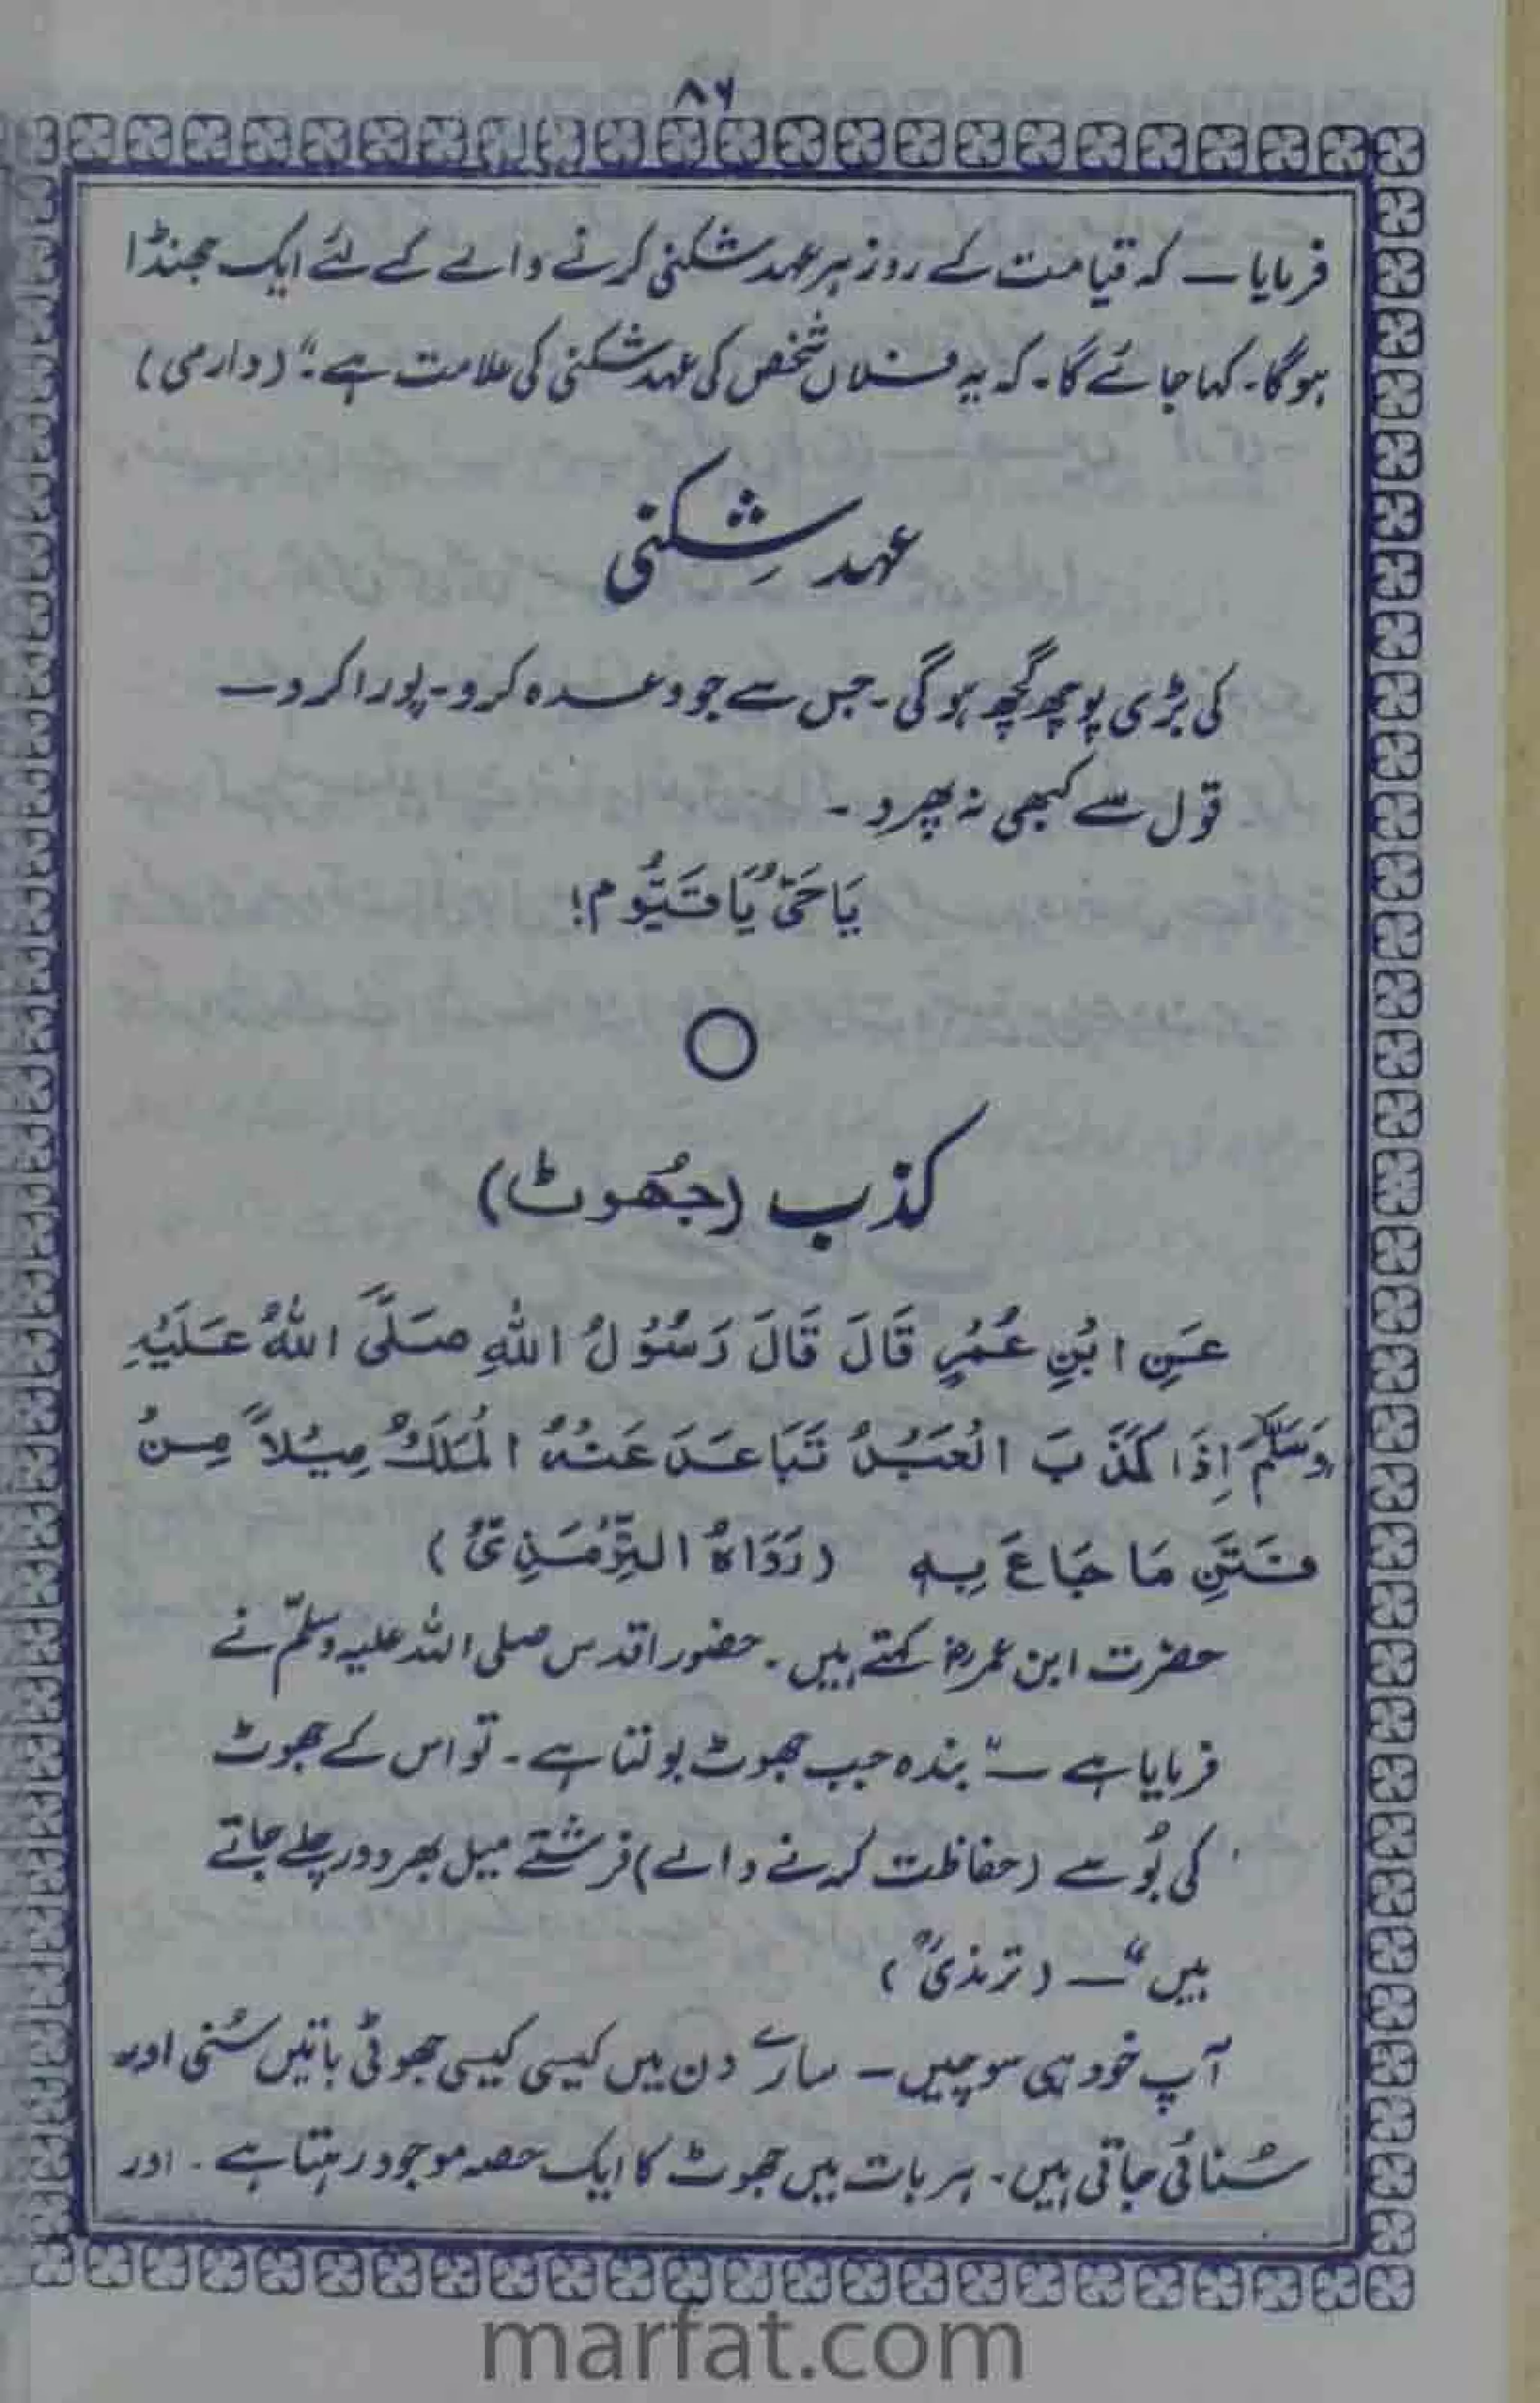 ۸۶
فرمایا ـ کہ قیامت کے روز ہر عہد شکنی کرنے والے کے لئے ایک جھنڈا
ہوگا۔ کہا جائے گا۔ کہ یہ فلاں شخص کی عہد شکنی کی علامت ہے۔" (دارمی)
عہد شِکنی
کی بڑی پوچھ گچھ ہو گی۔ جس سے جو وعدہ کرو۔ پورا کرو ـ
قول سے کبھی نہ پھرو ۔
یَا حَیُّ یَا قَیُّوم!
کذب (جھُوٹ)
عَنِ ابْنِ عُمَرٍ قَالَ قَالَ رَسُوْلُ اللّٰهِ صَلَّی اللّٰهُ عَلَیْهِ
وَسَلَّمَ اِذَا کَذَبَ الْعَبْدُ تَبَاعَدَ عَنْهُ الْمَلَكُ مِیْلاً مِنْ
نَتَنِ مَا جَاءَ بِهٖ (رَوَاهُ التِّرْمَذِیُّ)
حضرت ابن عمر رضؓ کہتے ہیں۔ حضور اقدس صلی اللہ علیہ وسلّم نے
فرمایا ہے ـ "بندہ جب جھوٹ بولتا ہے۔ تو اس کے جھوٹ
کی بُو سے (حفاظت کرنے والے) فرشتے میل بھر دور چلے جاتے
ہیں" ـ (ترمذیؒ)
آپ خود ہی سوچیں ـ سارے دن میں کیسی کیسی جھوٹی باتیں سُنی اور
سُنائی جاتی ہیں۔ ہر بات میں جھوٹ کا ایک حصہ موجود رہتا ہے۔ اور
marfat.com